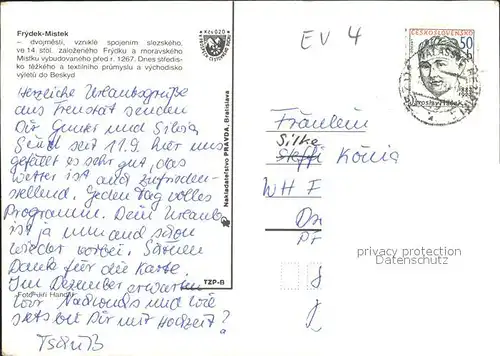 Frýdek-Místek
– dvojměstí, vzniklé spojením slezského,
ve 14. stol. založeného Frýdku a moravského
Místku vybudovaného před r. 1267. Dnes středis-
ko těžkého a textilního průmyslu a východisko
výletů do Beskyd
Herzliche Urlaubsgrüße
aus Frenštát senden
Dir Gunter und Silvia
Sind seit 11.9. hier uns
gefällt es sehr gut, das
Wetter ist auch zufrieden-
stellend. Jeden Tag volles
Programm. Dein Urlaub
ist ja nun auch schon
wieder vorbei. Schönen
Dank für die Karte.
Im Dezember erwarten
wir Nachwuchs und wie
siehts bei Dir mit Hochzeit?
Tschüß
Foto: Jiří Handl
Kčs 0,20
Nakladatelství PRAVDA, Bratislava
TZP-B
EV 4
ČESKOSLOVENSKO
50
h
Fräulein
Silke
Steffi König
WH F
privacy protection
DATENSCHUTZ